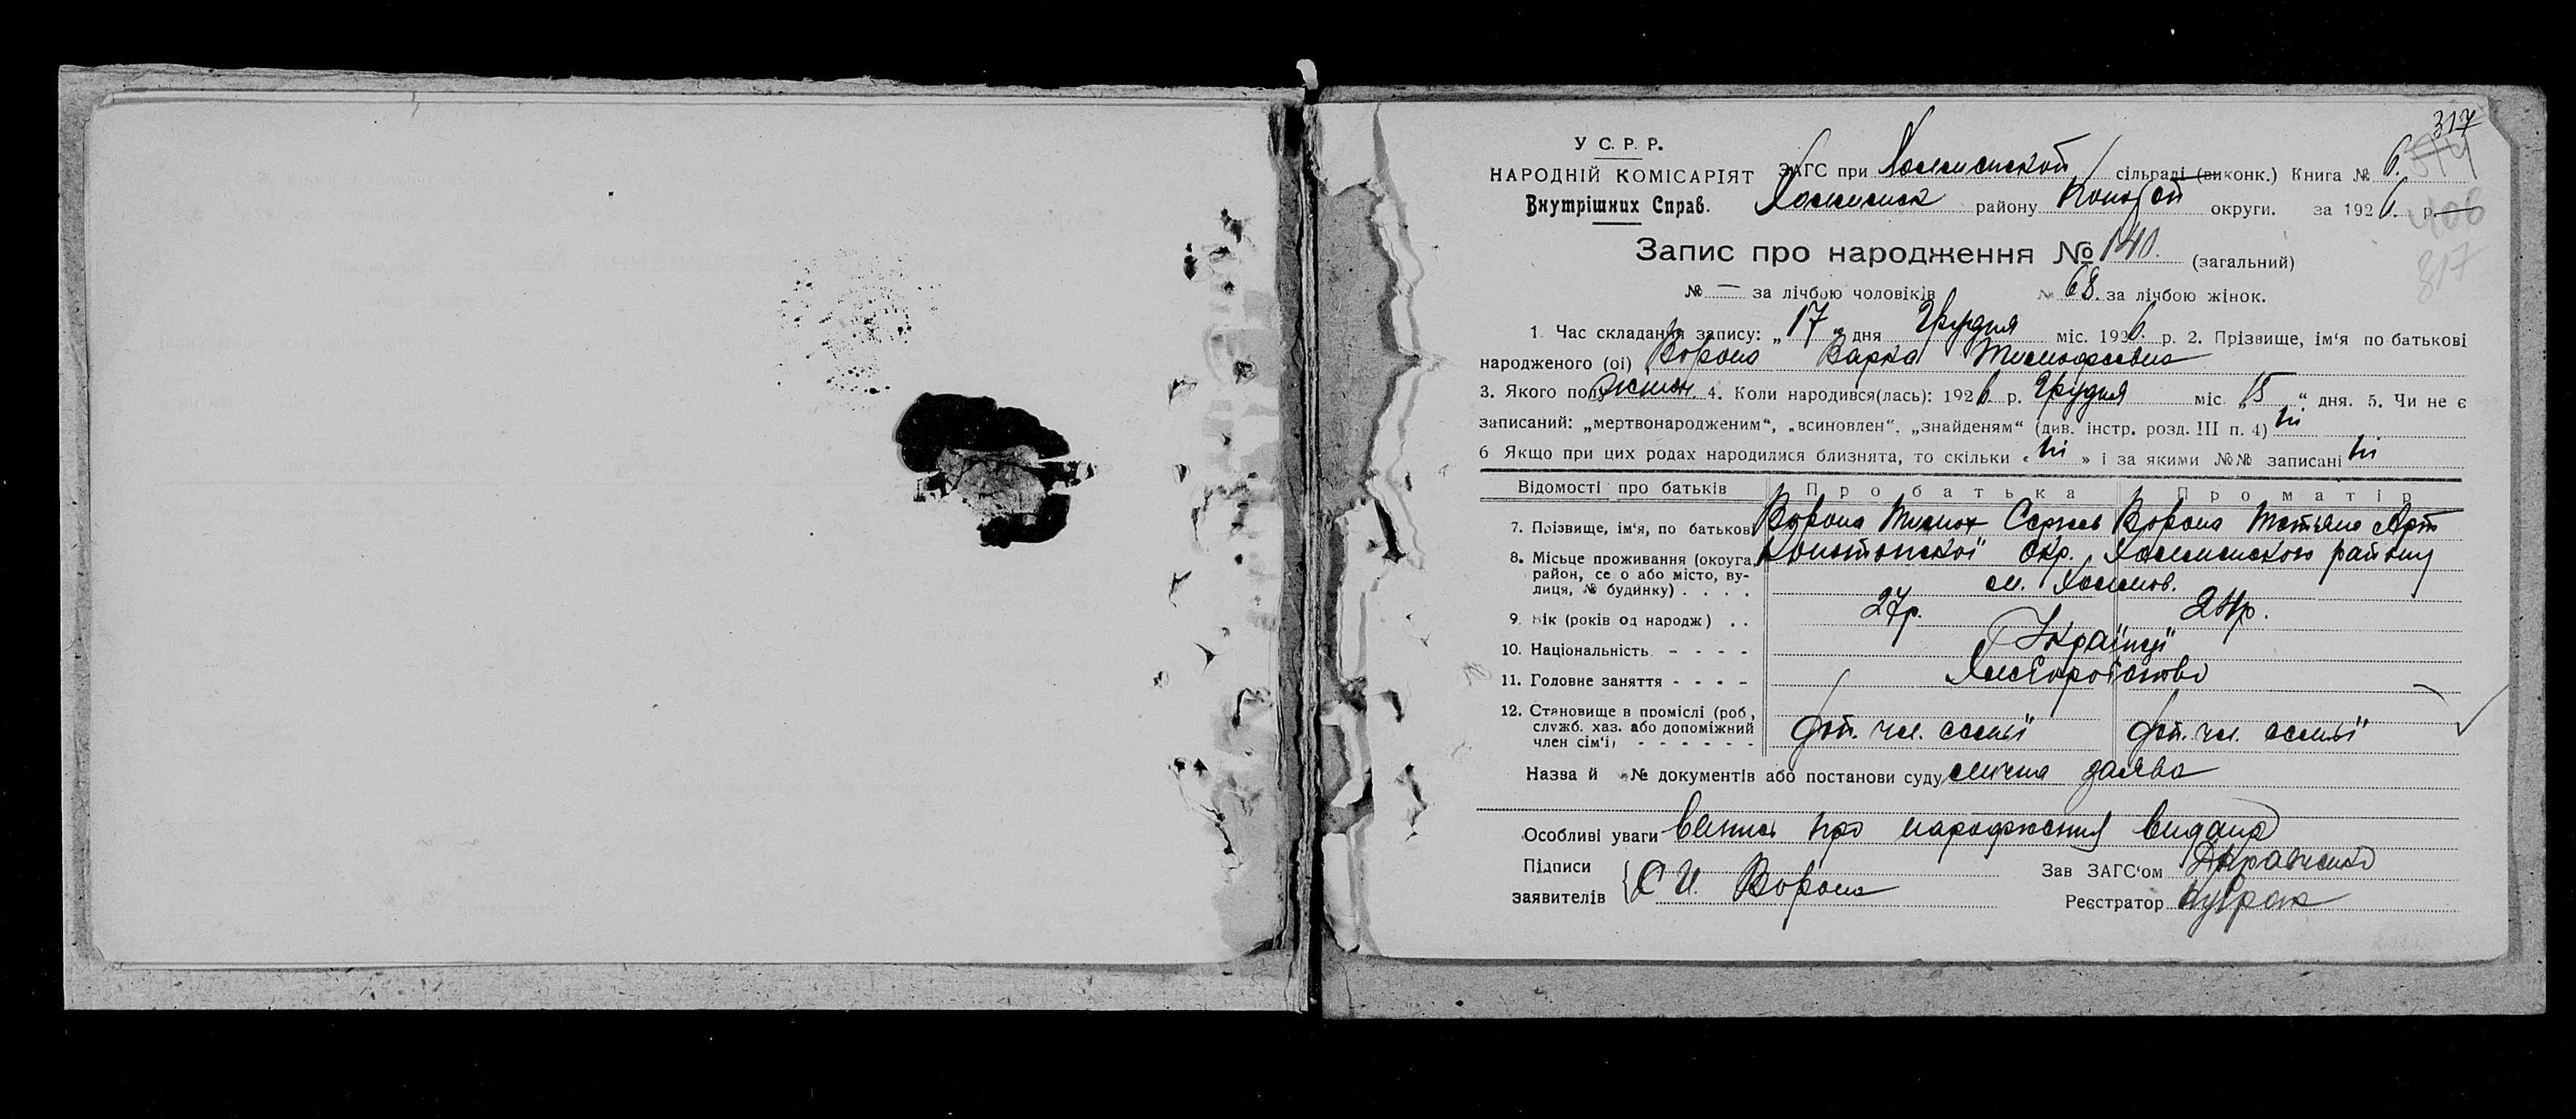 317
У С. Р. Р.
НАРОДНІЙ КОМІСАРІЯТ
Внутрішних Справ.
ЗАГС при сільраді (виконк.) Книга № 6.
району Коноտոп округи. за 1926. р.
406
317
Запис про народження № 140. (загальний)
№ — за лічбою чоловіків № 68. за лічбою жінок.
1. Час складання запису: „17„ дня Грудня міс. 1926. р. 2. Прізвище, ім'я по-батькові
народженого (ої) Ворона Варка Тимофеевна
3. Якого полу жіноч. 4. Коли народився(лась): 1926 р. Грудня міс. „15“ дня. 5. Чи не є
записаний: „мертвонародженим“, „всиновлен“, „знайденям“ (див. інстр. розд. III п. 4) ні
6 Якщо при цих родах народилися близнята, то скільки « ні » і за якими №№ записані ні
Відомості про батьків Про батька Про матір
7. Прізвище, ім'я, по батькові Ворона Тимох Сергеев Ворона Татьяна Арт
8. Місьце проживання (округа, район, село або місто, вулиця, № будинку) . . . . Конотопської окр. району
9. Вік (років од народж) . . 27р. 24р.
10. Національність - - - - Українці
11. Головне заняття - - - - Хліборобство
12. Становище в проміслі (роб, служб. хаз. або допоміжний член сім'ї) - - - - - - доп. чл. семьї доп. чл. семьї
Назва й № документів або постанови суду заява
Особливі уваги про народження видана
Підписи
заявителів С И. Ворона
Зав ЗАГС'ом
Реєстратор